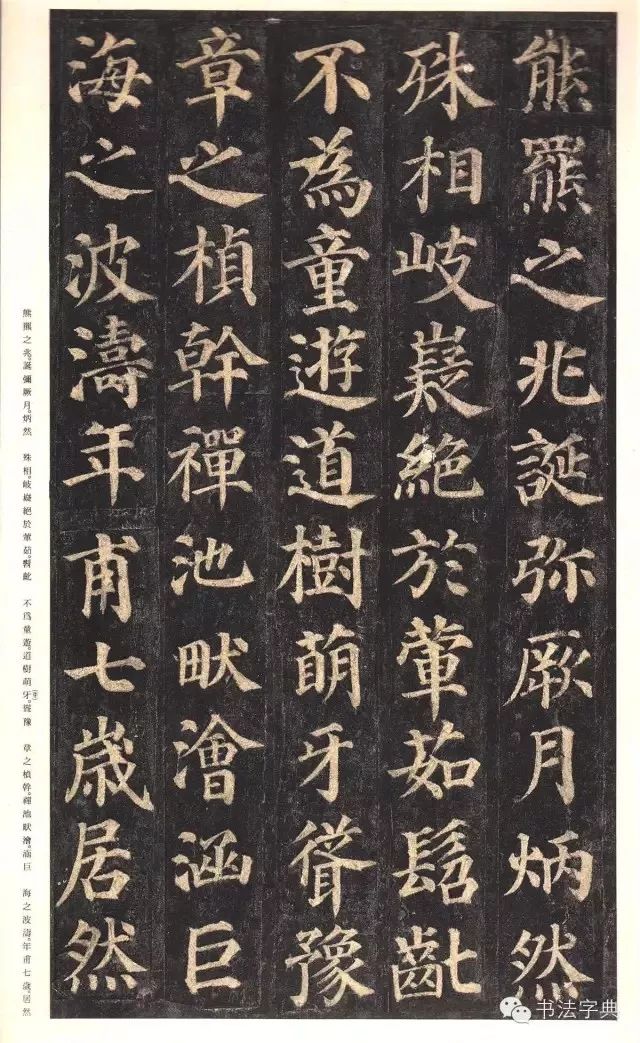 熊羆之兆誕弥厥月炳然
殊相岐嶷絶於葷茹髫齔
不為童遊道樹萌牙聳豫
章之楨幹禪池畎澮涵巨
海之波濤年甫七歲居然
熊羆之兆。誕彌厥月。炳然　殊相。岐嶷絕於葷茹。髫齔　不爲童遊。道樹萌牙(芽)。聳豫　章之楨幹。禪池畎澮。涵巨　海之波濤。年甫七歲。居然
书法字典